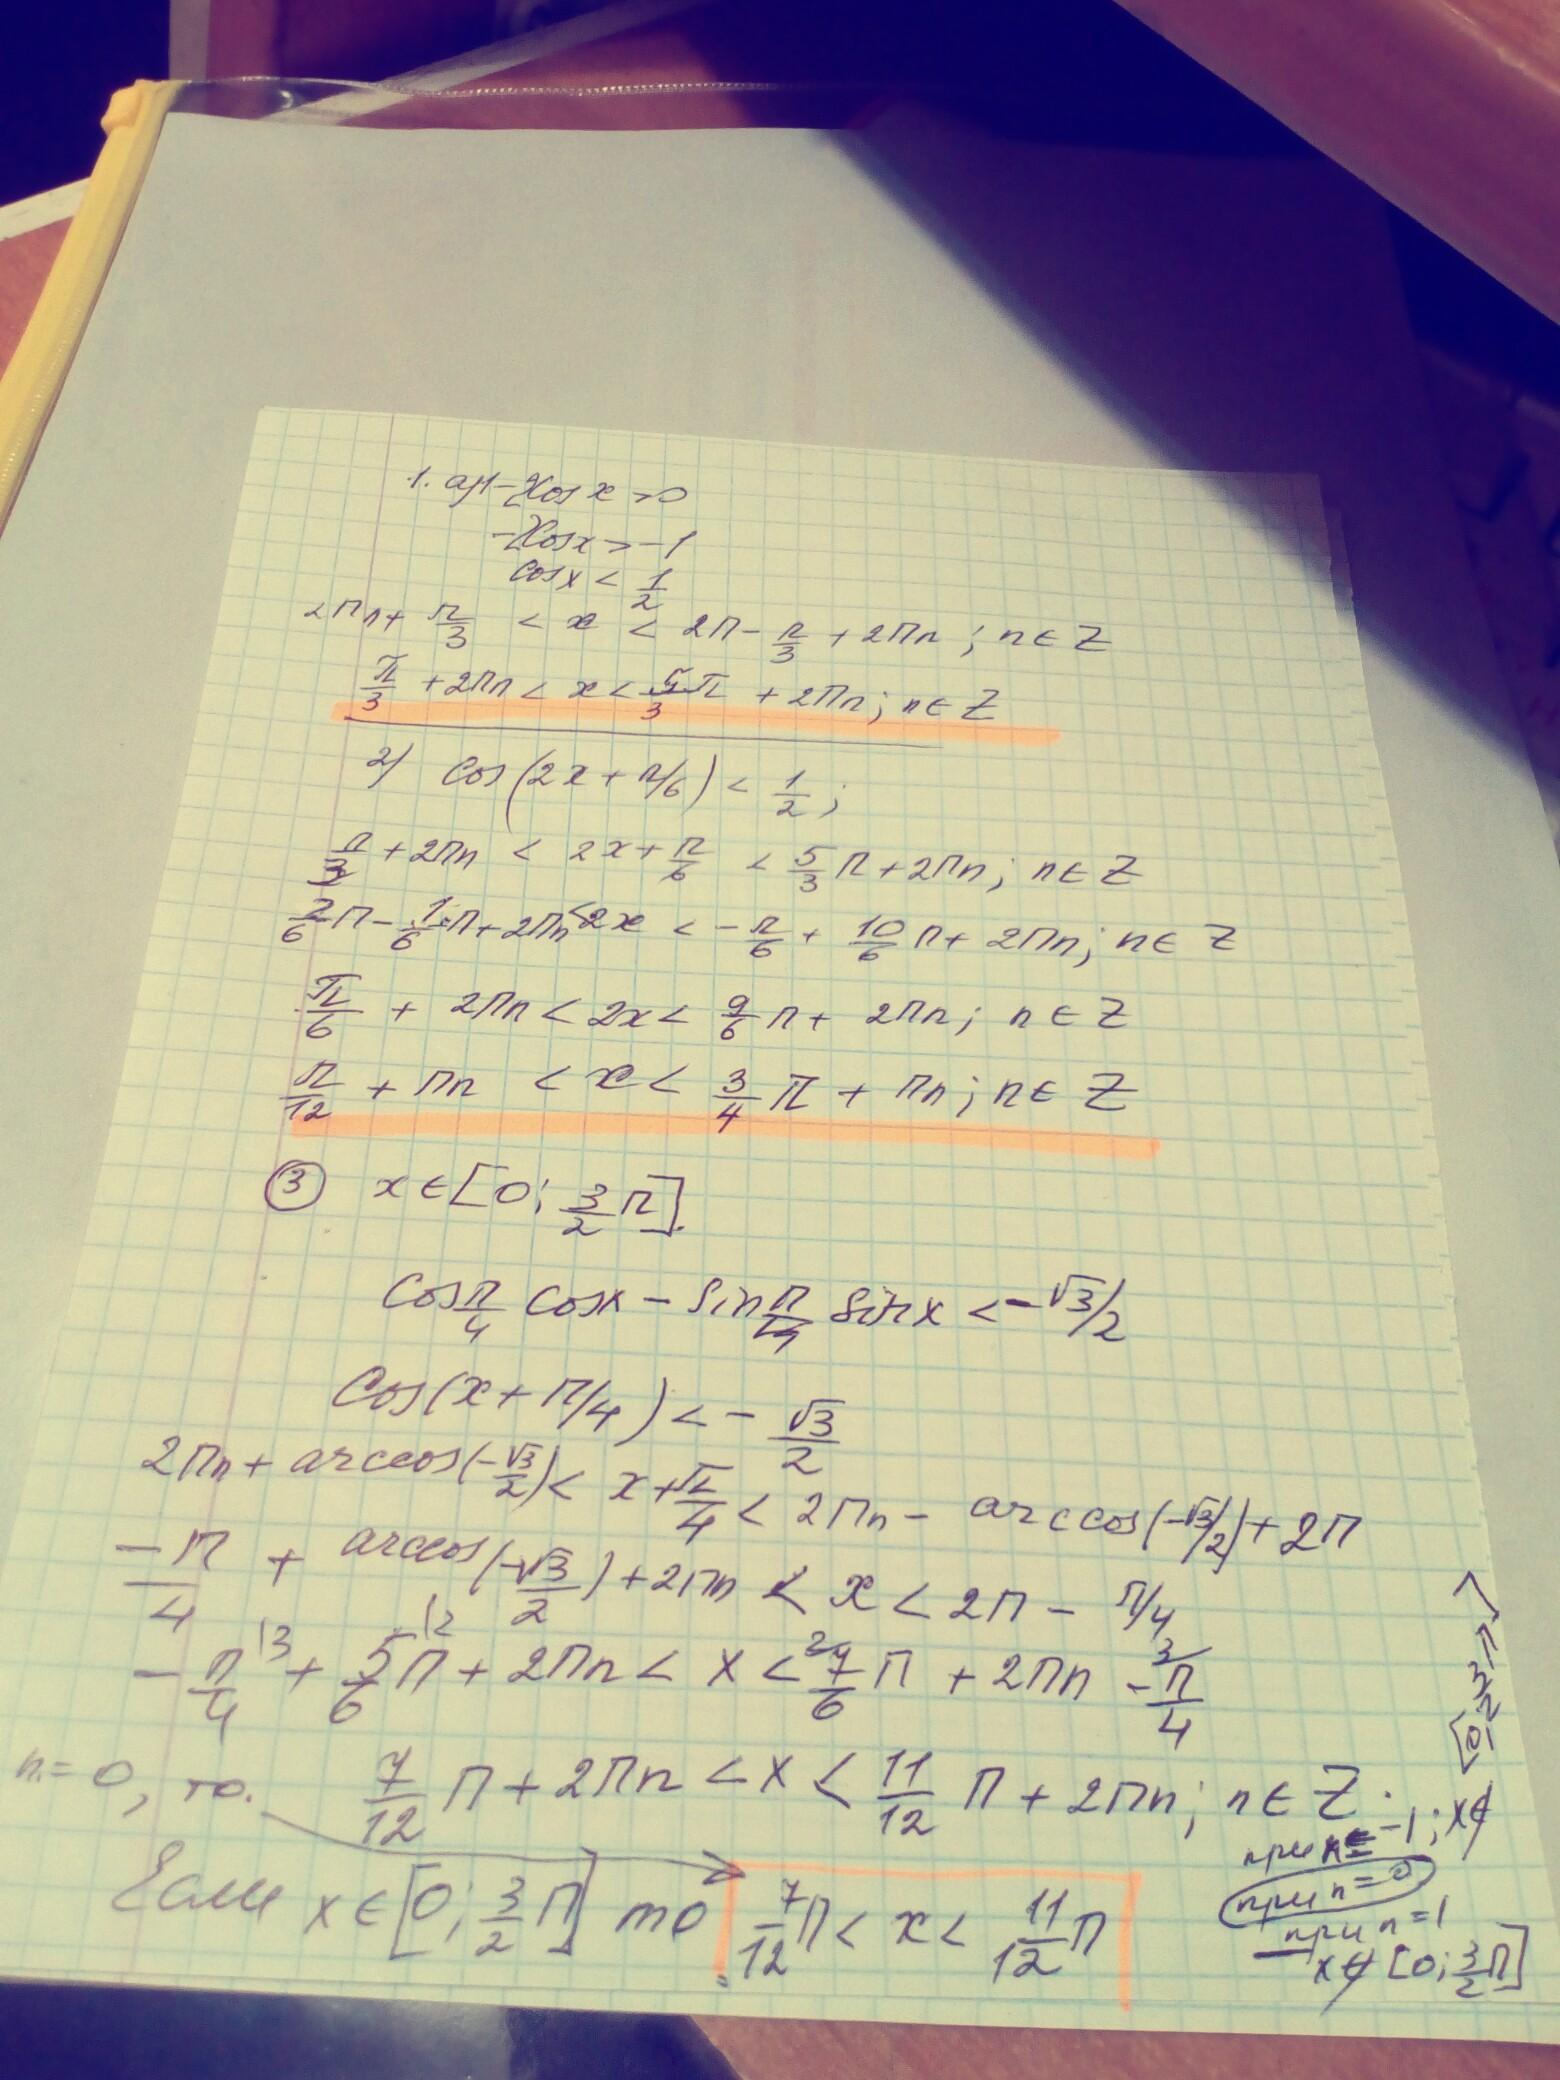 1. a) 1-2cos x > 0
-2cosx > -1
cosx < 1/2
2πn + π/3 < x < 2π - π/3 + 2πn; n∈Z
π/3 + 2πn < x < 5π/3 + 2πn; n∈Z
2) cos(2x + π/6) < 1/2;
π/3 + 2πn < 2x + π/6 < 5/3 π + 2πn; n∈Z
2/6 π - 1/6 π + 2πn < 2x < -π/6 + 10/6 π + 2πn; n∈Z
π/6 + 2πn < 2x < 9/6 π + 2πn; n∈Z
π/12 + πn < x < 3/4 π + πn; n∈Z
③ x∈[0; 3/2 π].
cos π/4 cosx - sin π/4 sinx < -√3/2
cos(x + π/4) < -√3/2
2πn + arccos(-√3/2) < x + π/4 < 2πn - arccos(-√3/2) + 2π
-π/4 + arccos(-√3/2) + 2πn < x < 2π - π/4
-π/4 \3 + 5/6 π \2 + 2πn < x < 7/6 \2 π + 2πn - π/4 \3
n=0, то. 7/12 π + 2πn < x < 11/12 π + 2πn; n∈Z.
Если x∈[0; 3/2 π] то 7/12 π < x < 11/12 π
при n=-1; x∉
[0; 3/2 π]
при n=0
при n=1
x∉[0; 3/2 π]